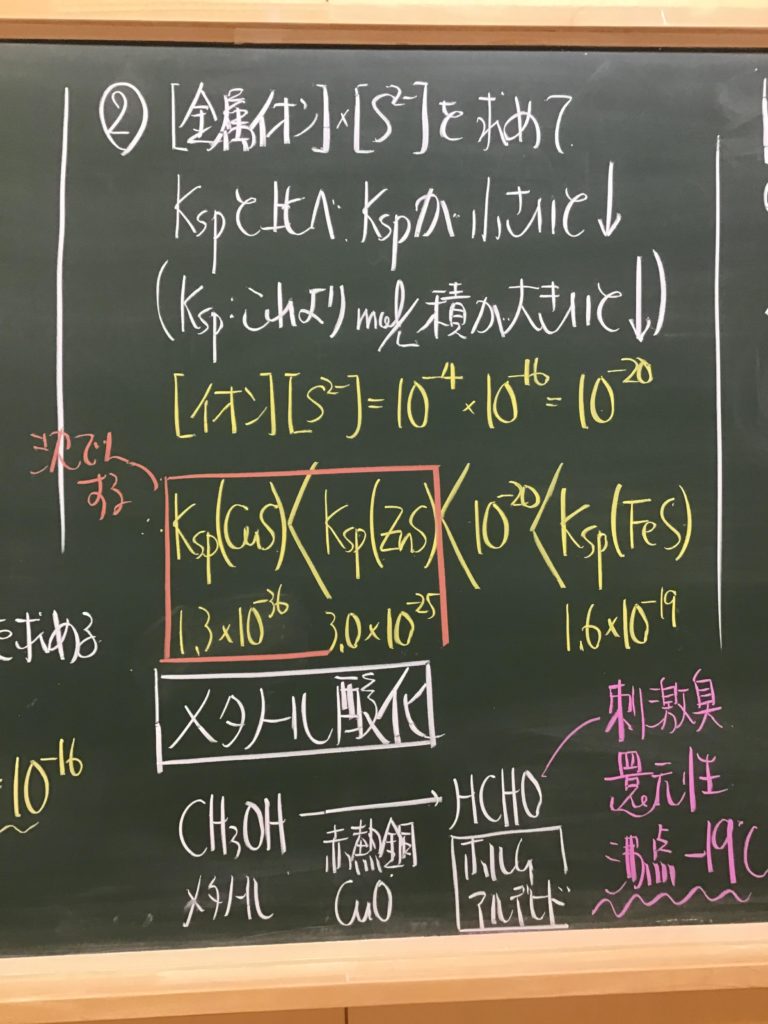 ② [金属イオン]×[S²⁻]を求めて
Kspと比べ Kspが小さいと↓
(Ksp:これより mol/L積が大きいと↓)
[イオン][S²⁻]=10⁻⁴×10⁻¹⁶=10⁻²⁰
沈でん
する
Ksp(CuS)<Ksp(ZnS)<10⁻²⁰<Ksp(FeS)
1.3×10⁻³⁶ 3.0×10⁻²⁵ 1.6×10⁻¹⁹
を求める
10⁻¹⁶
メタノール酸化
CH₃OH → HCHO
赤熱銅
メタノール CuO ホルム
アルデヒド
刺激臭
還元性
沸点-19℃